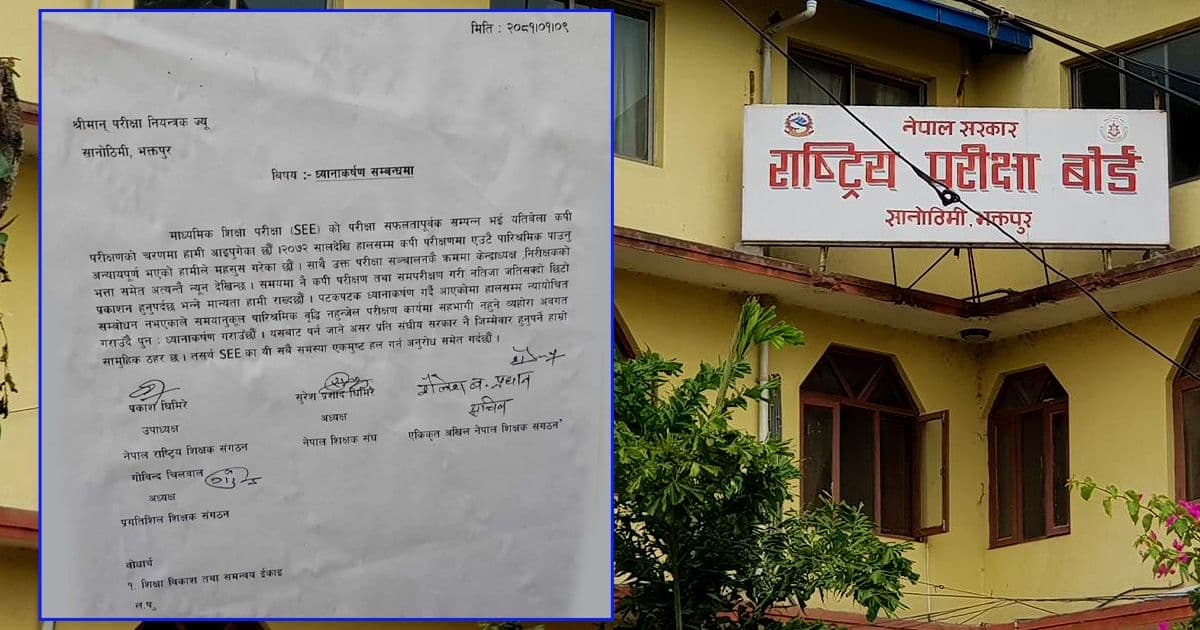 मिति : २०८१०१०९
श्रीमान् परीक्षा नियन्त्रक ज्यू
सानोठिमी, भक्तपुर
विषय :- ध्यानाकर्षण सम्बन्धमा
माध्यमिक शिक्षा परीक्षा (SEE) को परीक्षा सफलतापूर्वक सम्पन्न भई यतिवेला कपी
परीक्षणको चरणमा हामी आइपुगेका छौँ ।२०७२ सालदेखि हालसम्म कपी परीक्षणमा एउटै पारिश्रमिक पाउनु
अन्यायपूर्ण भएको हामीले महसुस गरेका छौं । साथै उक्त परीक्षा सञ्चालनकै क्रममा केन्द्राध्यक्ष ,निरीक्षकको
भत्ता समेत अत्यन्तै न्यून देखिन्छ । समयमा नै कपी परीक्षण तथा सम्परीक्षण गरी नतिजा जतिसक्दो छिटो
प्रकाशन हुनुपर्दछ भन्ने मान्यता हामी राख्दछौं । पटकपटक ध्यानाकर्षण गर्दै आएकोमा हालसम्म न्यायोचित
सम्बोधन नभएकाले समयानुकूल पारिश्रमिक वृद्धि नहुन्जेल परीक्षण कार्यमा सहभागी नहुने व्यहोरा अवगत
गराउदै पुन : ध्यानाकर्षण गराउंछौं । यसबाट पर्न जाने असर प्रति संघीय सरकार नै जिम्मेवार हुनुपर्ने हाम्रो
सामुहिक ठहर छ । तसर्थ SEE का यी सवै समस्या एकमुष्ट हल गर्न अनुरोध समेत गर्दछौं ।
प्रकाश घिमिरे
उपाध्यक्ष
नेपाल राष्ट्रिय शिक्षक संगठन
सुरेश प्रशाद घिमिरे
अध्यक्ष
नेपाल शिक्षक संघ
शैलेश ब. प्रधान
सचिव
एकिकृत अखिल नेपाल शिक्षक संगठन
गोविन्द चिलवाल
अध्यक्ष
प्रगतिशिल शिक्षक संगठन
वोधार्थ
१. शिक्षा विकाश तथा समन्वय ईकाइ
नेपाल सरकार
राष्ट्रिय परीक्षा बोर्ड
सानोठिमी, भक्तपुर